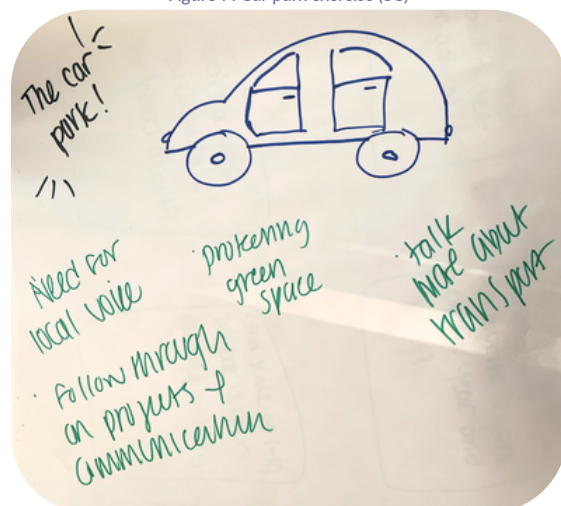 The car
park!
Need for
local voice
· protecting
green
space
· talk
more about
transport
· Follow through
on projects &
communication